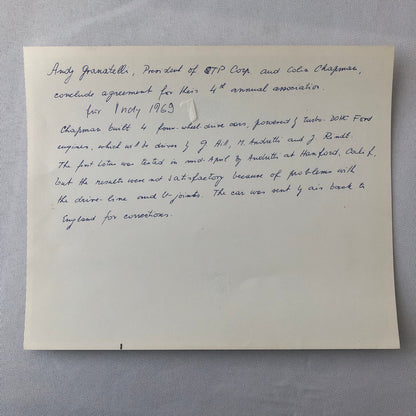 Andy Granatelli, President of STP Corp and Colin Chapman,
conclude agreement for their 4th annual association.
for Indy 1969
Chapman built 4 four-wheel drive cars, powered by turbo. DOHC Ford
engines, which will be driven by G Hill, M. Andretti and J. Rindt.
The first Lotus was tested in mid-April by Andretti at Hanford, Calif,
but the results were not satisfactory because of problems with
the drive-line and U-joints. The car was sent by air back to
England for corrections.